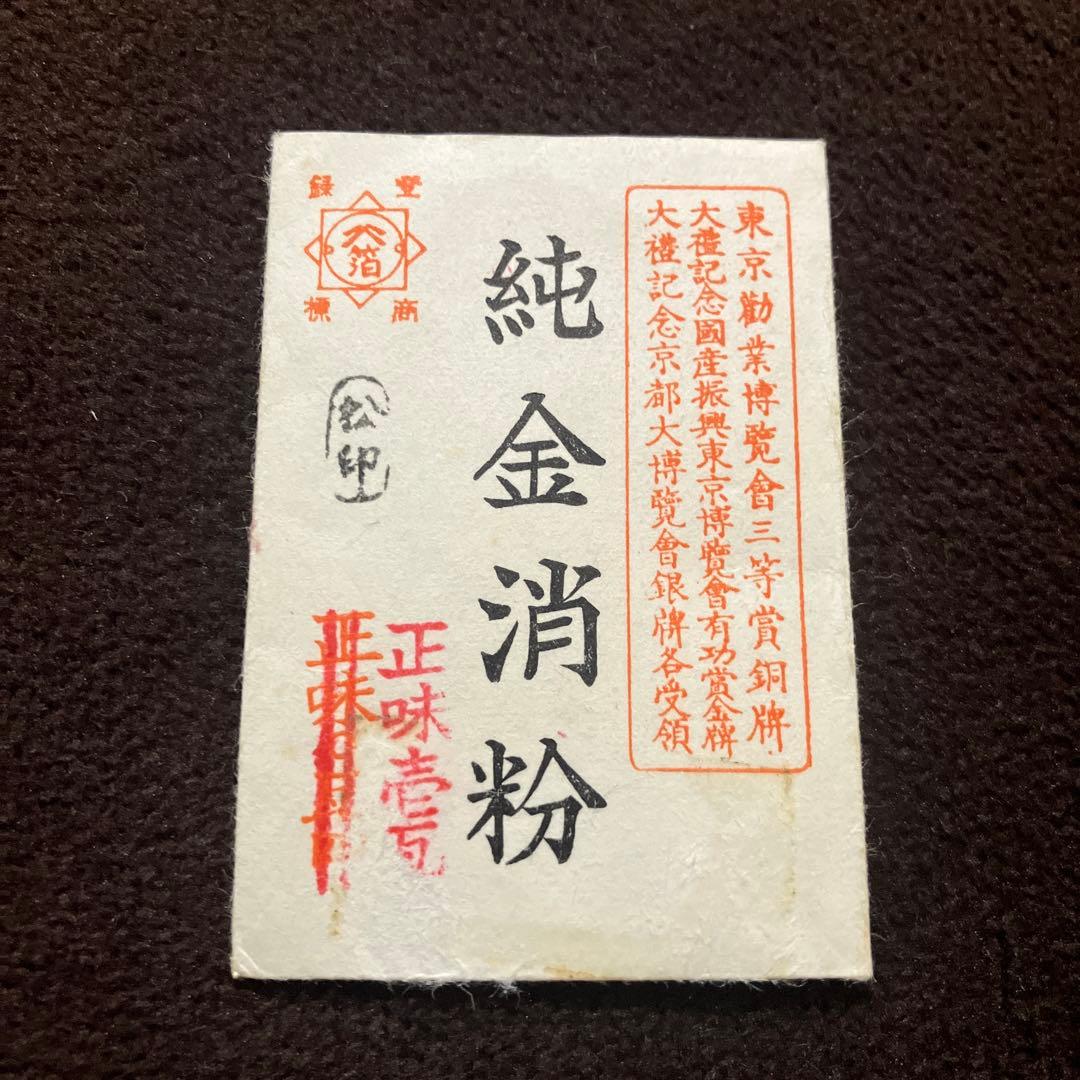 東京勸業博覽會三等賞銅牌
大禮記念國產振興東京博覽會有功賞金牌
大禮記念京都大博覽會銀牌各受領
純金消粉
正味壱瓦
正味
登録
商標
大箔
松印